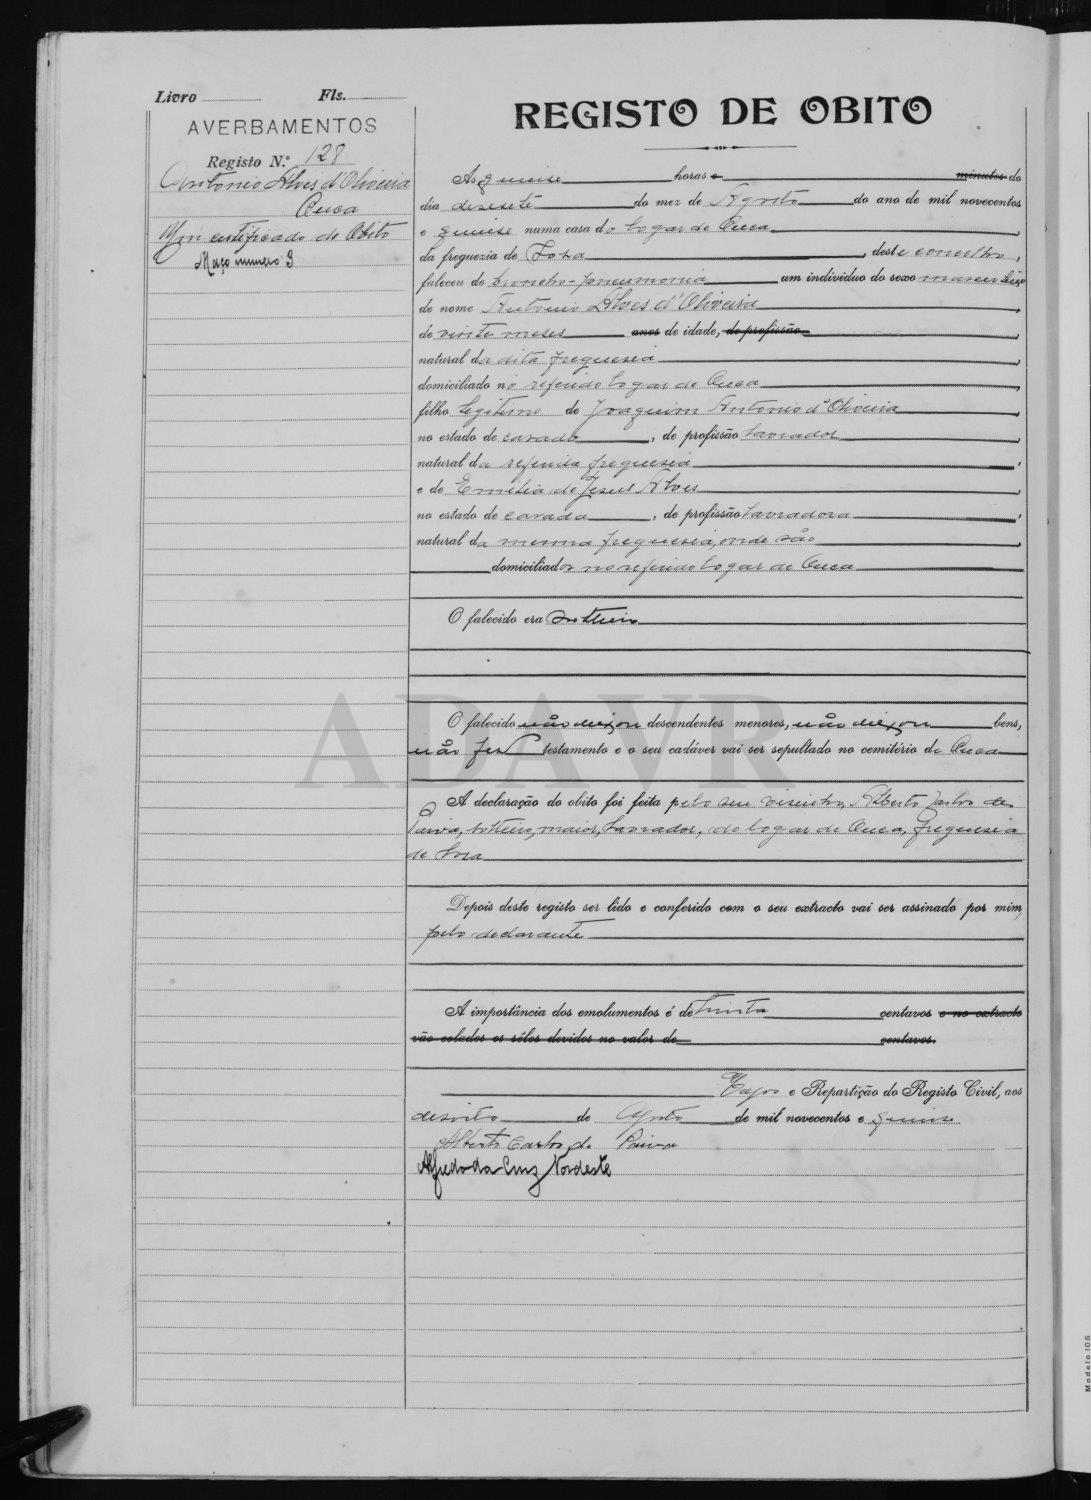 Livro Fls.
AVERBAMENTOS
Registo N.º 128
Antonio Alves d'Oliveira
Cuca
Um certificado de Obito
Maço numero 3
REGISTO DE OBITO
As quinse horas e minutos do
dia desesete do mez de Agosto do ano de mil novecentos
e quinse numa casa do logar de Cuca,
da freguezia de , deste concelho,
faleceu de broncho-pneumonia um individuo do sexo masculino
de nome Antonio Alves d'Oliveira,
de vinte meses anos de idade, de profissão
natural da dita freguesia,
domiciliado no referido logar de Cuca,
filho legitimo de Joaquim Antonio d'Oliveira,
no estado de casado, de profissão lavrador,
natural da referida freguesia,
e de Emilia de Jesus Alves,
no estado de casada, de profissão lavradora,
natural da mesma freguesia, onde são,
domiciliados no referido logar de Cuca
O falecido era solteiro
O falecido não deixou descendentes menores, não deixou bens,
não fez testamento e o seu cadáver vai ser sepultado no cemitério de Cuca
A declaração do obito foi feita pelo seu visinho, Alberto Carlos de
Paiva, solteiro, maior, lavrador, do logar de Cuca, freguesia
de
Depois deste registo ser lido e conferido com o seu extracto vai ser assinado por mim,
pelo declarante
A importância dos emolumentos é de trinta centavos e no extracto
vão colados os sêlos devidos no valor de centavos.
e Repartição do Registo Civil, aos
desoito de Agosto de mil novecentos e quinse
Alberto Carlos de Paiva
Alfredo da Cruz Nordeste
ADAVR
Modelo 105